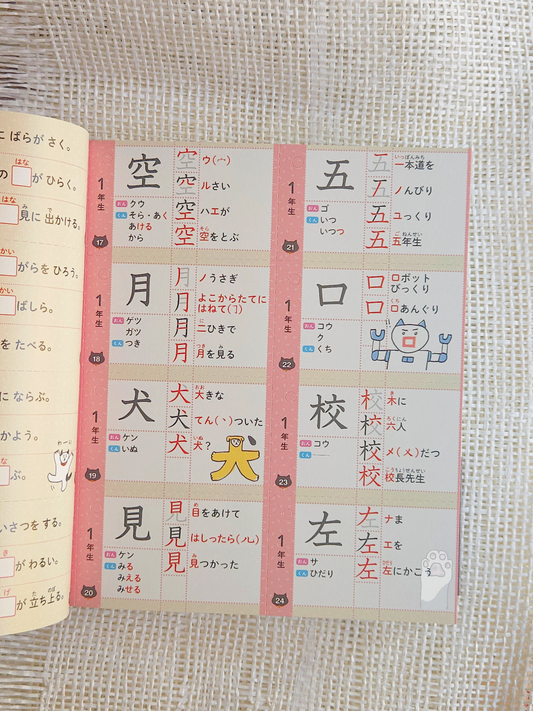 に ばらが さく。
はな
の が ひらく。
はな み で
見に 出かける。
かい
がらを ひろう。
かい
ばしら。
を たべる。
に ならぶ。
かよう。
ぶ。
いさつを する。
き
が わるい。
げ た あ
が 立ち上る。
1年生
空
おん クウ
くん そら・あく
あける
から
空 ウ(宀)
空 ルさい
空 ハエが
空 そら
空をとぶ
17
1年生
月
おん ゲツ
ガツ
くん つき
月 ノうさぎ
月 よこからたてに
はねて(㇆)
月 二ひきで
月 つき み
月を見る
18
1年生
犬
おん ケン
くん いぬ
犬 おお
大きな
犬 てん(丶)ついた
犬 いぬ
犬?
犬
19
1年生
見
おん ケン
くん みる
みえる
みせる
見 め
目をあけて
見 はしったら(儿)
見 み
見つかった
20
1年生
五
おん ゴ
くん いつ
いつつ
五 いっぽんみち
一本道を
五 ノんびり
五 ユっくり
五 ごねんせい
五年生
21
1年生
口
おん コウ
ク
くん くち
口 ロボット
びっくり
口 くち
口あんぐり
口
22
1年生
校
おん コウ
くん
校 き
木に
校 ろくにん
六人
校 メ(乂)だつ
校 こうちょうせんせい
校長先生
23
1年生
左
おん サ
くん ひだり
左 ナま
左 エを
左 ひだり
左にかこう
24